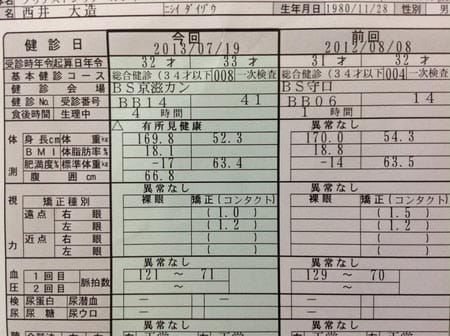 ニシイ ダイゾウ
西井 大造 生年月日 1980/11/28 性別 男
健診日 今回 前回
2013/07/19 2012/08/08
受診時年令起算日年令 32才 33才 31才 32才
基本健診コース 総合健診(34才以下 008 一次検査 総合健診(34才以下 004 一次検査
健診会場 BS京滋カン BS守口
健診No. 受診番号 BB14 41 BB06 14
食後時間 生理中 4時間 時間
△ 有所見健康 異常なし
身長cm 体重kg 169.8 52.3 170.0 54.3
体測 BMI 体脂肪率% 18.1 18.8
肥満度% 標準体重kg -17 63.4 -14 63.5
腹囲cm 66.8
異常なし 異常なし
視力 矯正種別 裸眼 矯正(コンタクト) 裸眼 矯正(コンタクト)
遠点 右眼 (1.0) (1.5)
左眼 (1.2) (1.2)
近点 右眼 ( ) ( )
左眼 ( ) ( )
異常なし 異常なし
血圧 1回目 脈拍数 121 ~ 71 129 ~ 70
2回目
検 尿蛋白 尿潜血 － － － －
尿糖 尿ウロ － －